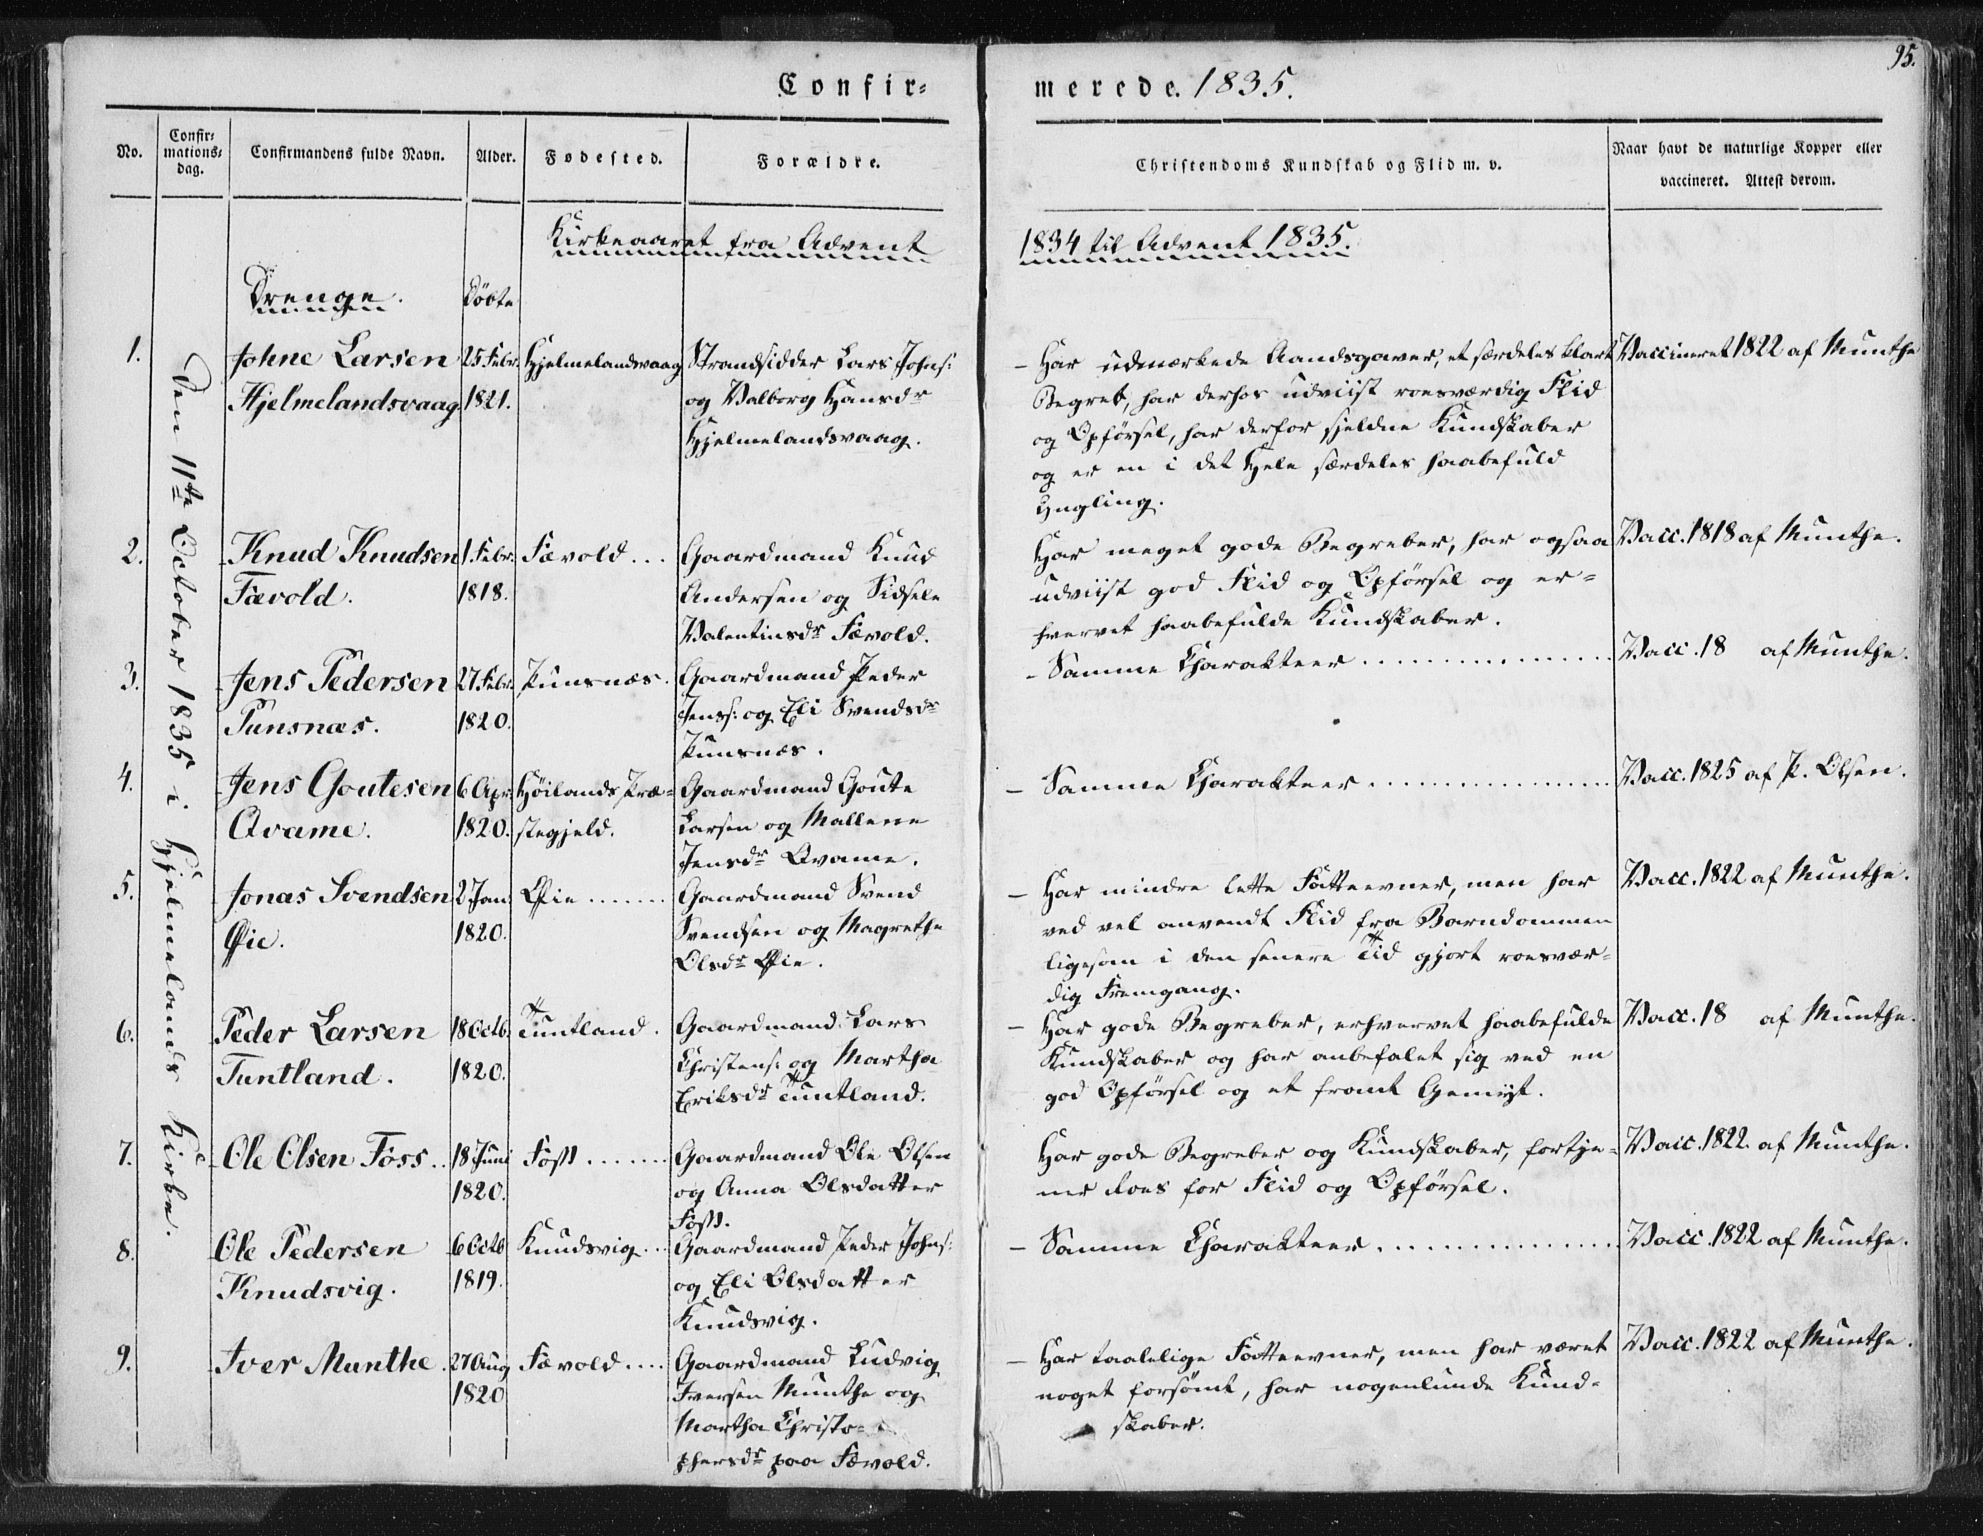 95.
Confir=
merede. 1835.
No.
Confir=
mations=
dag.
Confirmandens fulde Navn.
Alder.
Fødested.
Forældre.
Christendoms Kundskab og Flid m. v.
Naar havt de naturlige Kopper eller
vaccineret. Attest derom.
Kirkeaaret fra Advent
1834 til Advent 1835.
Drenge.
Døbte
Den 11te October 1835 i Hjelmelands Kirke.
1.
Johne Larsen
Hjelmelandsvaag
25 Febr.
1821.
Hjelmelandsvaag
Strandsidder Lars Johns:
og Valborg Hansdr
Hjelmelandsvaag.
– Har udmærkede Aandsgaver, et særdeles klart
Begreb, har derhos udviist roesværdig Flid
og Opførsel, har derfor sjeldne Kundskaber
og er en i det Hele særdeles haabefuld
Yngling.
Vaccineret 1822 af Munthe
2.
Knud Knudsen
Fævold.
1 Febr.
1818.
Fævold...
Gaardmand Knud
Andersen og Sidsele
Valentinsdr Fævold.
Har meget gode Begreber, har ogsaa
udviist god Flid og Opførsel og er=
hvervet haabefulde Kundskaber.
Vacc. 1818 af Munthe.
3.
Jens Pedersen
Punsnæs.
27 Febr.
1820.
Punsnæs.
Gaardmand Peder
Jenss: og Eli Svendsdr
Punsnæs.
– Samme Charakteer ................
Vacc. 18 af Munthe.
4.
Jens Goutesen
Qvame.
6 Apr.
1820.
Høilands Præ=
stegjeld.
Gaardmand Goute
Larsen og Mallene
Jensdr Qvame.
– Samme Charakteer ................
Vacc. 1825 af P. Olsen.
5.
Jonas Svendsen
Øie.
2 Jan.
1820.
Øie .......
Gaardmand Svend
Svendsen og Magrethe
Olsdr Øie.
– Har mindre lette Fatteevner, men har
ved vel anvendt Flid fra Barndommen
ligesom i den senere Tid gjort roesvær=
dig Fremgang.
Vacc. 1822 af Munthe.
6.
Peder Larsen
Tuntland.
18 Octb.
1820.
Tuntland.
Gaardmand Lars
Christens: og Martha
Eriksdr Tuntland.
– Har gode Begreber, erhvervet haabefulde
Kundskaber og har anbefalet sig ved en
god Opførsel og et fromt Gemyt.
Vacc. 18 af Munthe.
7.
Ole Olsen Foss..
18 Juni
1820.
Foss .......
Gaardmand Ole Olsen
og Anna Olsdatter
Foss.
Har gode Begreber og Kundskaber, fortje=
ner Roes for Flid og Opførsel.
Vacc. 1822. af Munthe.
8.
Ole Pedersen
Knudsvig.
6 Octb
1819.
Knudsvig...
Gaardmand Peder Johns:
og Eli Olsdatter
Knudsvig.
– Samme Charakteer ................
Vacc. 1822 af Munthe.
9.
Iver Munthe.
27 Aug
1820
Fævold ....
Gaardmand Ludvig
Iversen Munthe og
Martha Christo=
phersdr paa Fævold.
– Har taalelige Fatteevner, men har været
noget forsømt, har nogenlunde Kund=
skaber.
Vacc. 1822 af Munthe.